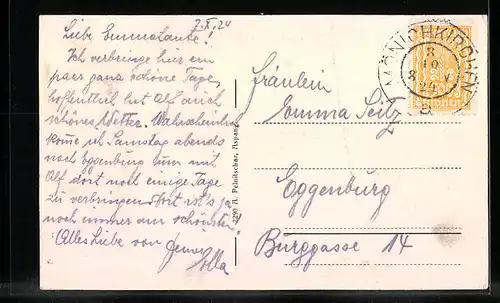 7.X.24
Liebe Emmatante!
Ich verbringe hier ein
paar ganz schöne Tage,
hoffentlich hat Alf auch
schönes Wetter. Wahrscheinlich
komme ich Samstag abends
nach Eggenburg um mit
Alf dort noch einige Tage
zu verbringen, dort ist's ja
noch immer am schönsten!
Alles Liebe von
Fräulein
Emma Seitz
Eggenburg
Burggasse 14
MÖNICHKIRCHEN
8
10
24
KRONEN
2290 A. Pelnitschar, Aspang